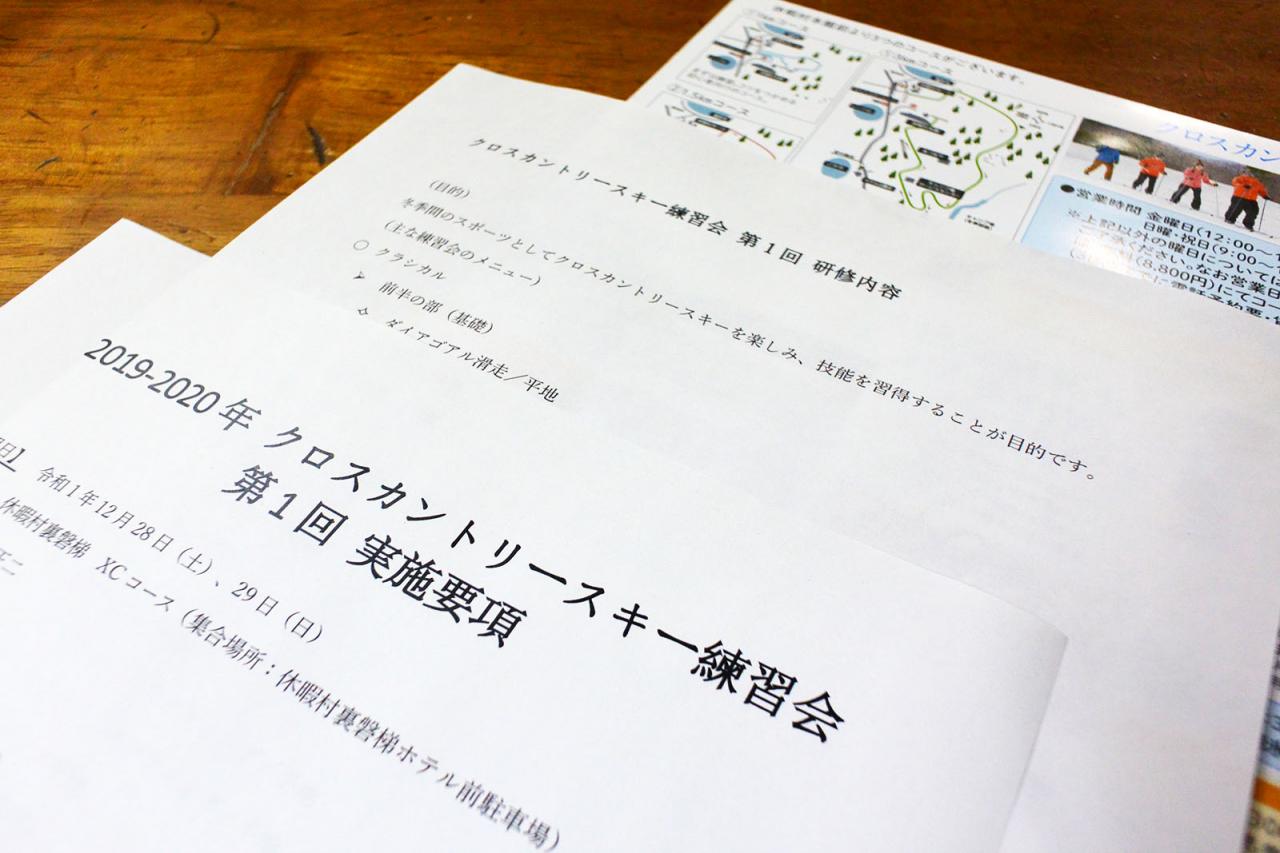 2019-2020年 クロスカントリースキー練習会
第1回 実施要項
令和1年12月28日（土）、29日（日）
休暇村裏磐梯 XCコース（集合場所：休暇村裏磐梯ホテル前駐車場）
クロスカントリースキー練習会 第1回 研修内容
（目的）
冬季間のスポーツとしてクロスカントリースキーを楽しみ、技能を習得することが目的です。
（主な練習会のメニュー）
○ クラシカル
➢ 前半の部（基礎）
◇ ダイアゴアル滑走／平地
コース
クロスカン
●営業時間 金曜日(12:00～
日曜・祝日(9:00～
※上記以外の曜日については
(8,800円)にてコー